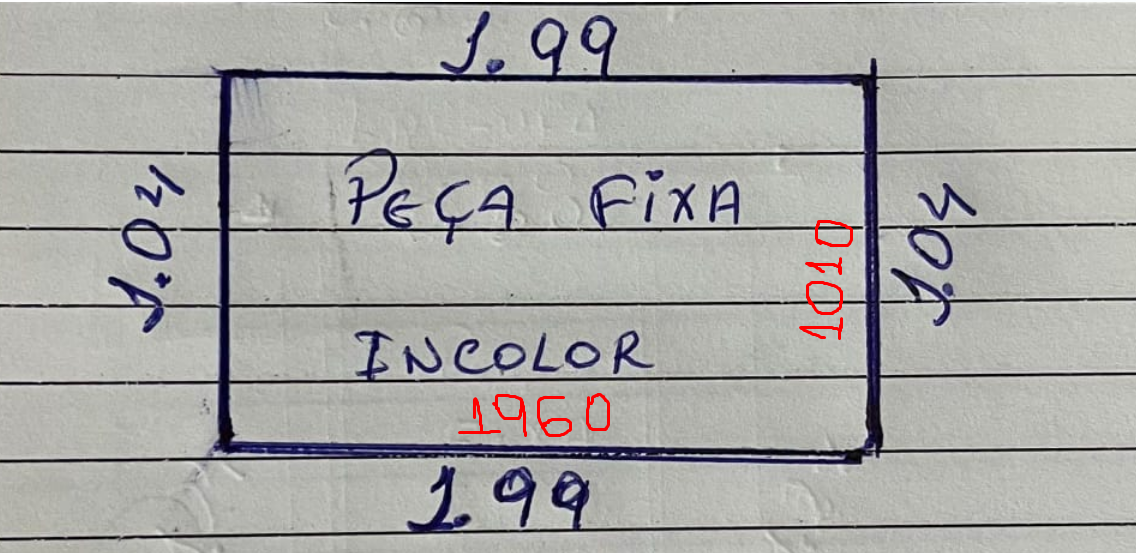 1.99
1.04
PEÇA FIXA
1010
1.04
INCOLOR
1960
1.99